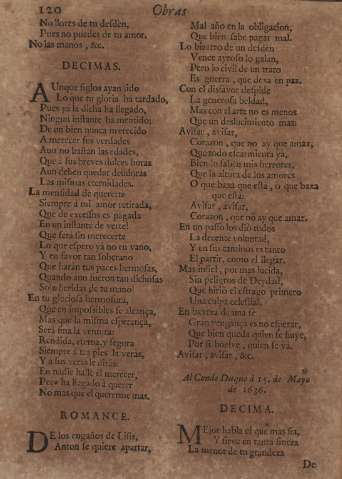 120 Obras
No llores de tu desdèn,
Pues no puedes de tu amor.
No las manos, &c.
DECIMAS.
AUnque siglos ayan sido
Lo que tu gloria ha tardado,
Pues ya la dicha ha llegado,
Ningun instante ha mentido;
De un bien nunca merecido
A merecer sus verdades
Aun no bastan las edades,
Que à sus breves dulces horas
Aun deben quedar deudoras
Las mismas eternidades.
La inmensidad de quererte
Siempre à mi amor retirada,
Que de excessos es pagada
En un instante de verte!
Que serà sin merecerte
Lo que espero yà no en vano,
Y en favor tan soberano
Que haràn tus paces hermosas,
Quando aun fueron tan dichosas
Solo heridas de tu mano
En tu gloriosa hermosura,
Que en impossibles se alcança,
Mas que la misma esperança,
Serà fina la ventura:
Rendida, eterna, y segura
Siempre à tus pies la veras,
Y a sus veras le diràs
En nadie hallè el merecer,
Pero ha llegado à querer
No mas que el quererme mas.
ROMANCE.
DE los engaños de Lisis,
Anton se quiere apartar,
Mal año en la obligacion,
Que bien sabe pagar mal.
Lo bizarro de un desdèn
Vence ayroso lo galan,
Pero lo civil de un trato
Es guerra, que dexa en paz.
Con el disfavor despide
La generosa beldad,
Mas con el arte no es menos
Que un deslucimiento mas.
Avisar, avisar,
Corazon, que no ay que amar,
Que todo es
que la altura de los amores
O que baxa que està, o que baxa
que està!
Avisar, avisar,
Corazon, que no ay que amar.
En un passo los diò todos
La decente voluntad,
Y en sus caminos es tanto
El partir, como el llegar.
Mas infiel, por mas lucida,
Sin peligros de Deydad,
Que hirio el estrago primero
Una culpa celestial.
Gran vengança es no esperar,
Que bien queda quien se huye,
Por si buelve, quien se và.
Avisar, avisar, &c.
Al Conde Duque à 15. de Mayo
de 1636.
DECIMA.
MEjor habla el que mas fia,
Y sirve en tanta fineza
La menor de tu grandeza
De